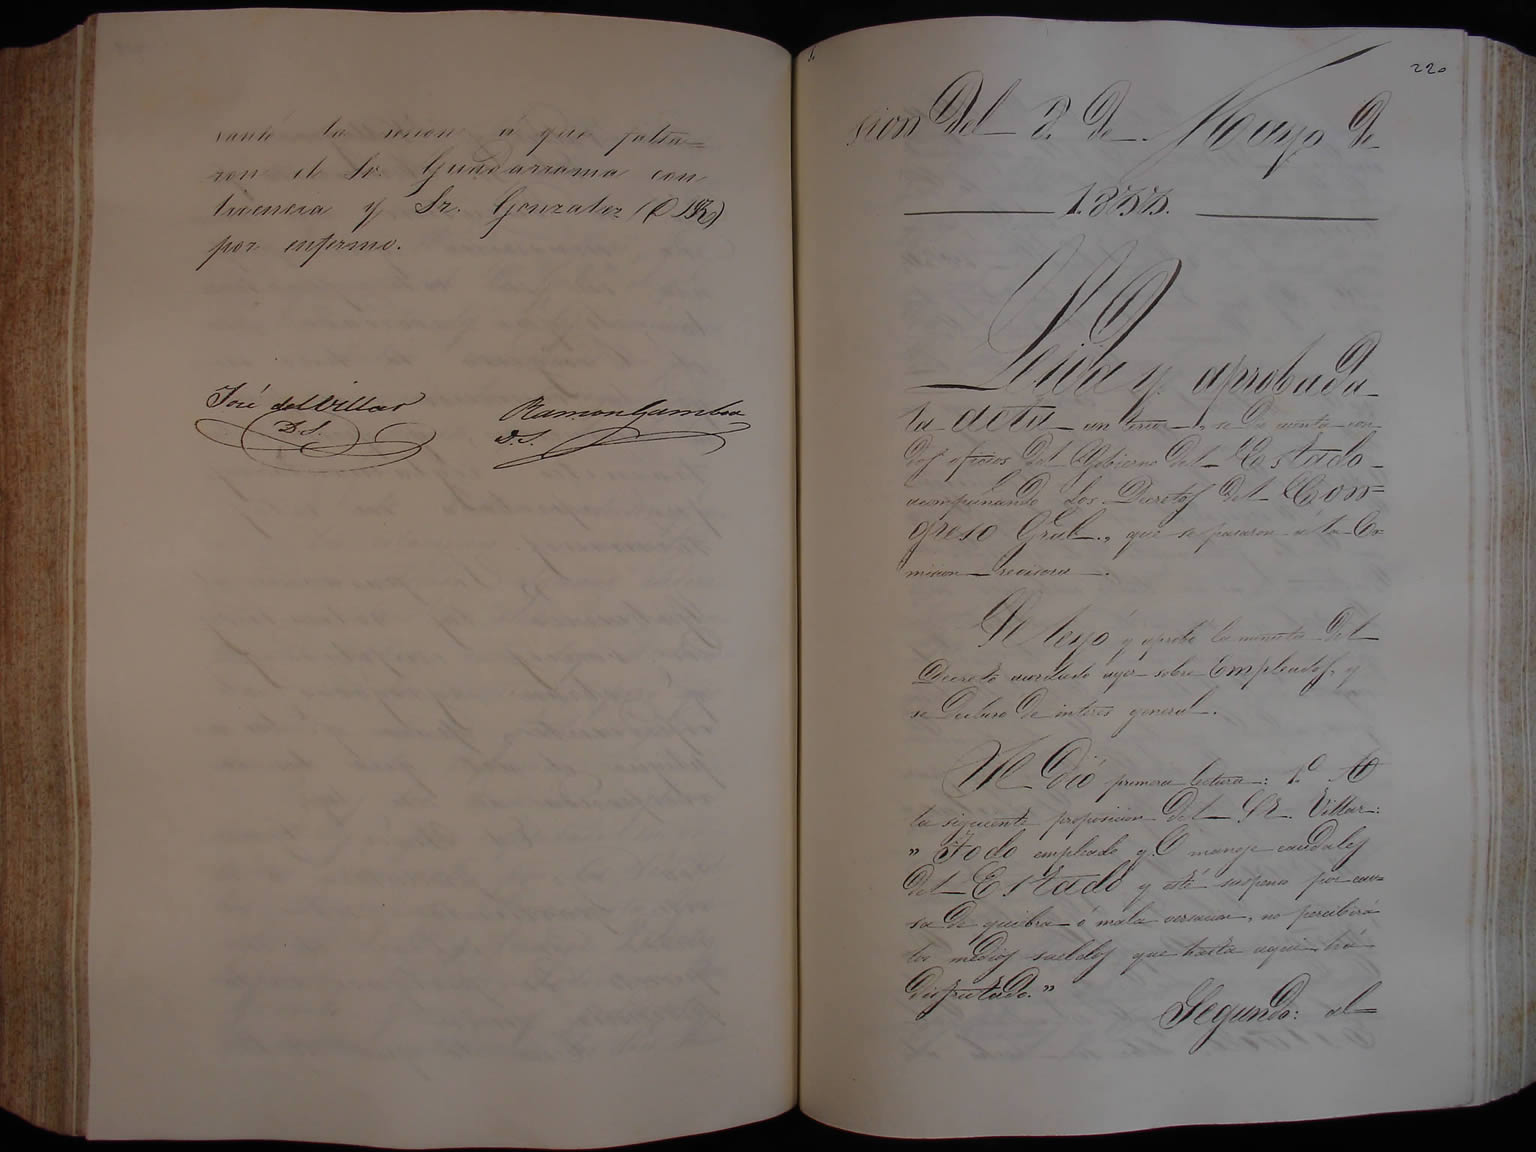 vantó la sesion á que falta=
ron el Sr. Guadarrama con
licencia y Sr. Gonzalez (D
por enfermo.
José del Villar
D. S.
Ramon Gamboa
D. S.
220
sion Del 2. De Mayo De
1.833.
Leida y aprobada
la acta anterior, se Dió cuenta con
dos oficios Del Gobierno Del Estado
acompañando Los Decretos Del Con=
greso Gral., que se pasaron á la Co=
mision revisora.
Se leyó y aprobó la minuta Del
Decreto acordado ayer sobre Empleados, y
se Declaró De interes general.
Se Dió primera lectura: 1.º A
la siguiente proposicion Del Sr. Villar:
" Todo empleado q.e maneje caudales
Del Estado y esté suspenso por cau=
sa De quiebra ó mala versacion, no percibirá
los medios sueldos que hasta aqui há
Disfrutado."
Segundo: al=